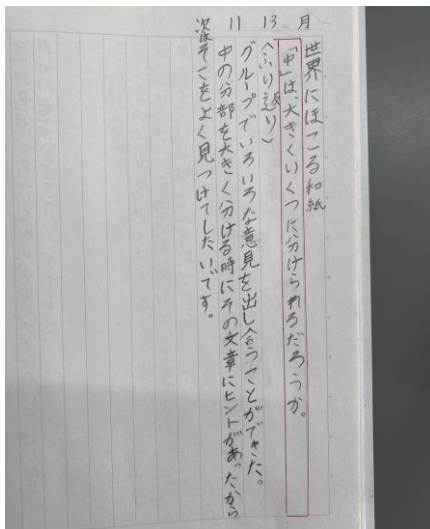 11 13 月
世界にほこる和紙
「中」は、大きくいくつに分けられるだろうか。
(ふり返り)
グループでいろいろな意見を出し合うことができた。
中の分部を大きく分ける時にその文章にヒントがあったから
次はそこをよく見つけてしたいです。